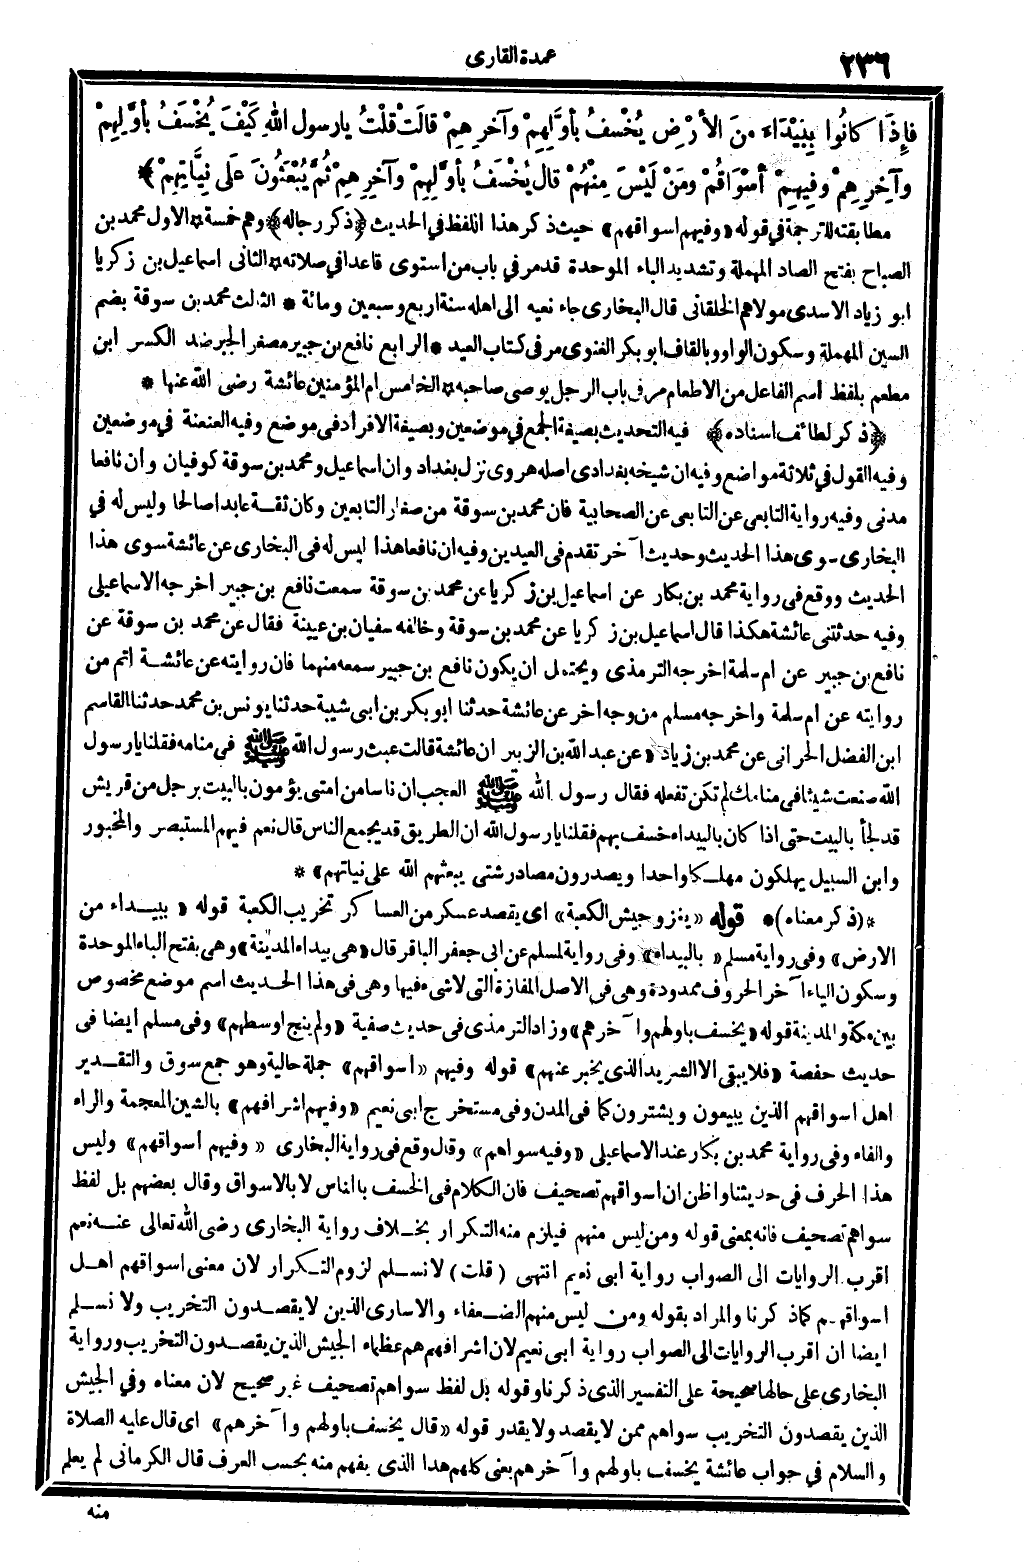 ٢٣٦
عمدة القارى
فإذَا كانُوا بِبَيْدَاءَ مِنَ الأرْضِ يُخْسَفُ بأوَّلِهِمْ وآخِرِهِمْ قالَتْ قُلْتُ يارسول اللهِ كَيْفَ يُخْسَفُ بأوَّلِهِمْ
وآخِرِهِمْ وفِيهِمْ أسْوَاقُهُمْ ومَنْ لَيْسَ مِنْهُمْ قال يُخْسَفُ بأوَّلِهِمْ وآخِرِهِمْ ثُمَّ يُبْعَثُونَ عَلَى نِيَّاتِهِمْ ﴾
مطابقته للترجمة في قوله « وفيهم اسواقهم » حيث ذكر هذا اللفظ في الحديث ﴿ ذكر رجاله ﴾ وهم خمسة * الاول محمد بن
الصباح بفتح الصاد المهملة وتشديد الباء الموحدة قدمر في باب من استوى قاعدا في صلاته * الثانى اسماعيل بن زكريا
ابو زياد الاسدى مولاهم الخلقانى قال البخارى جاء نعيه الى اهله سنة اربع وسبعين ومائة * الثالث محمد بن سوقة بضم
السين المهملة وسكون الواو وبالقاف ابو بكر الغنوى مر فى كتاب العيد * الرابع نافع بن جبير مصغر الجبر ضد الكسر ابن
مطعم بلفظ اسم الفاعل من الاطعام مر فى باب الرجل يوصى صاحبه * الخامس ام المؤمنين عائشة رضى الله عنها *
﴿ ذكر لطائف اسناده ﴾ فيه التحديث بصيغة الجمع في موضعين وبصيغة الافراد فى موضع وفيه العنعنة في موضعين
وفيه القول في ثلاثة مواضع وفيه ان شيخه بغدادى اصله هروى نزل بغداد وان اسماعيل ومحمد بن سوقة كوفيان وان نافعا
مدنى وفيه رواية التابعى عن التابعى عن الصحابية فان محمد بن سوقة من صغار التابعين وكان ثقة عابدا صالحا وليس له في
البخارى سوى هذا الحديث وحديث آخر تقدم فى العيدين وفيه ان نافعا هذا ليس له فى البخارى عن عائشة سوى هذا
الحديث ووقع فى رواية محمد بن بكار عن اسماعيل بن زكريا عن محمد بن سوقة سمعت نافع بن جبير اخرجه الاسماعيلى
وفيه حدثتنى عائشة هكذا قال اسماعيل بن زكريا عن محمد بن سوقة وخالفه سفيان بن عيينة فقال عن محمد بن سوقة عن
نافع بن جبير عن ام سلمة اخرجه الترمذى ويحتمل ان يكون نافع بن جبير سمعه منهما فان روايته عن عائشة اتم من
روايته عن ام سلمة واخرجه مسلم من وجه اخر عن عائشة حدثنا ابو بكر بن ابى شيبة حدثنا يونس بن محمد حدثنا القاسم
ابن الفضل الحرانى عن محمد بن زياد « عن عبد الله بن الزبير ان عائشة قالت عبث رسول الله ﷺ في منامه فقلنا يارسول
الله صنعت شيئا فى منامك لم تكن تفعله فقال رسول الله ﷺ العجب ان ناسا من امتى يؤمون بالبيت برجل من قريش
قد لجأ بالبيت حتى اذا كان بالبيداء خسف بهم فقلنا يارسول الله ان الطريق قد يجمع الناس قال نعم فيهم المستبصر والمجبور
وابن السبيل يهلكون مهلكا واحدا ويصدرون مصادر شتى يبعثهم الله على نياتهم » *
*( ذكر معناه )* قوله « يغزو جيش الكعبة » اى يقصد عسكر من العساكر تخريب الكعبة قوله « ببيداء من
الارض » وفى رواية مسلم « بالبيداء » وفى رواية لمسلم عن ابى جعفر الباقر قال « هى بيداء المدينة » وهى بفتح الباء الموحدة
وسكون الياء آخر الحروف ممدودة وهى فى الاصل المفازة التى لاشىء فيها وهى فى هذا الحديث اسم موضع مخصوص
بين مكة والمدينة قوله « يخسف باولهم وآخرهم » وزاد الترمذى فى حديث صفية « ولم ينج اوسطهم » وفى مسلم ايضا فى
حديث حفصة « فلا يبقى الا الشريد الذى يخبر عنهم » قوله وفيهم « اسواقهم » جملة حالية وهو جمع سوق والتقدير
اهل اسواقهم الذين يبيعون ويشترون كما فى المدن وفى مستخرج ابى نعيم « وفيهم اشرافهم » بالشين المعجمة والراء
والفاء وفى رواية محمد بن بكار عند الاسماعيلى « وفيه سواهم » وقال وقع فى رواية البخارى « وفيهم اسواقهم » وليس
هذا الحرف فى حديثنا واظن ان اسواقهم تصحيف فان الكلام فى الخسف بالناس لا بالاسواق وقال بعضهم بل لفظ
سواهم تصحيف فانه بمعنى قوله ومن ليس منهم فيلزم منه التكرار بخلاف رواية البخارى رضى الله تعالى عنه نعم
اقرب الروايات الى الصواب رواية ابى نعيم انتهى ( قلت ) لانسلم لزوم التكرار لان معنى اسواقهم اهل
اسواقهم كما ذكرنا والمراد بقوله ومن ليس منهم الضعفاء والاسارى الذين لا يقصدون التخريب ولا نسلم
ايضا ان اقرب الروايات الى الصواب رواية ابى نعيم لان اشرافهم هم عظماء الجيش الذين يقصدون التخريب ورواية
البخارى على حالها صحيحة على التفسير الذى ذكرنا وقوله بل لفظ سواهم تصحيف غير صحيح لان معناه وفي الجيش
الذين يقصدون التخريب سواهم ممن لا يقصد ولا يقدر قوله « قال يخسف باولهم وآخرهم » اى قال عليه الصلاة
والسلام في جواب عائشة يخسف باولهم وآخرهم يعنى كلهم هذا الذى يفهم منه بحسب العرف قال الكرمانى لم يعلم
منه